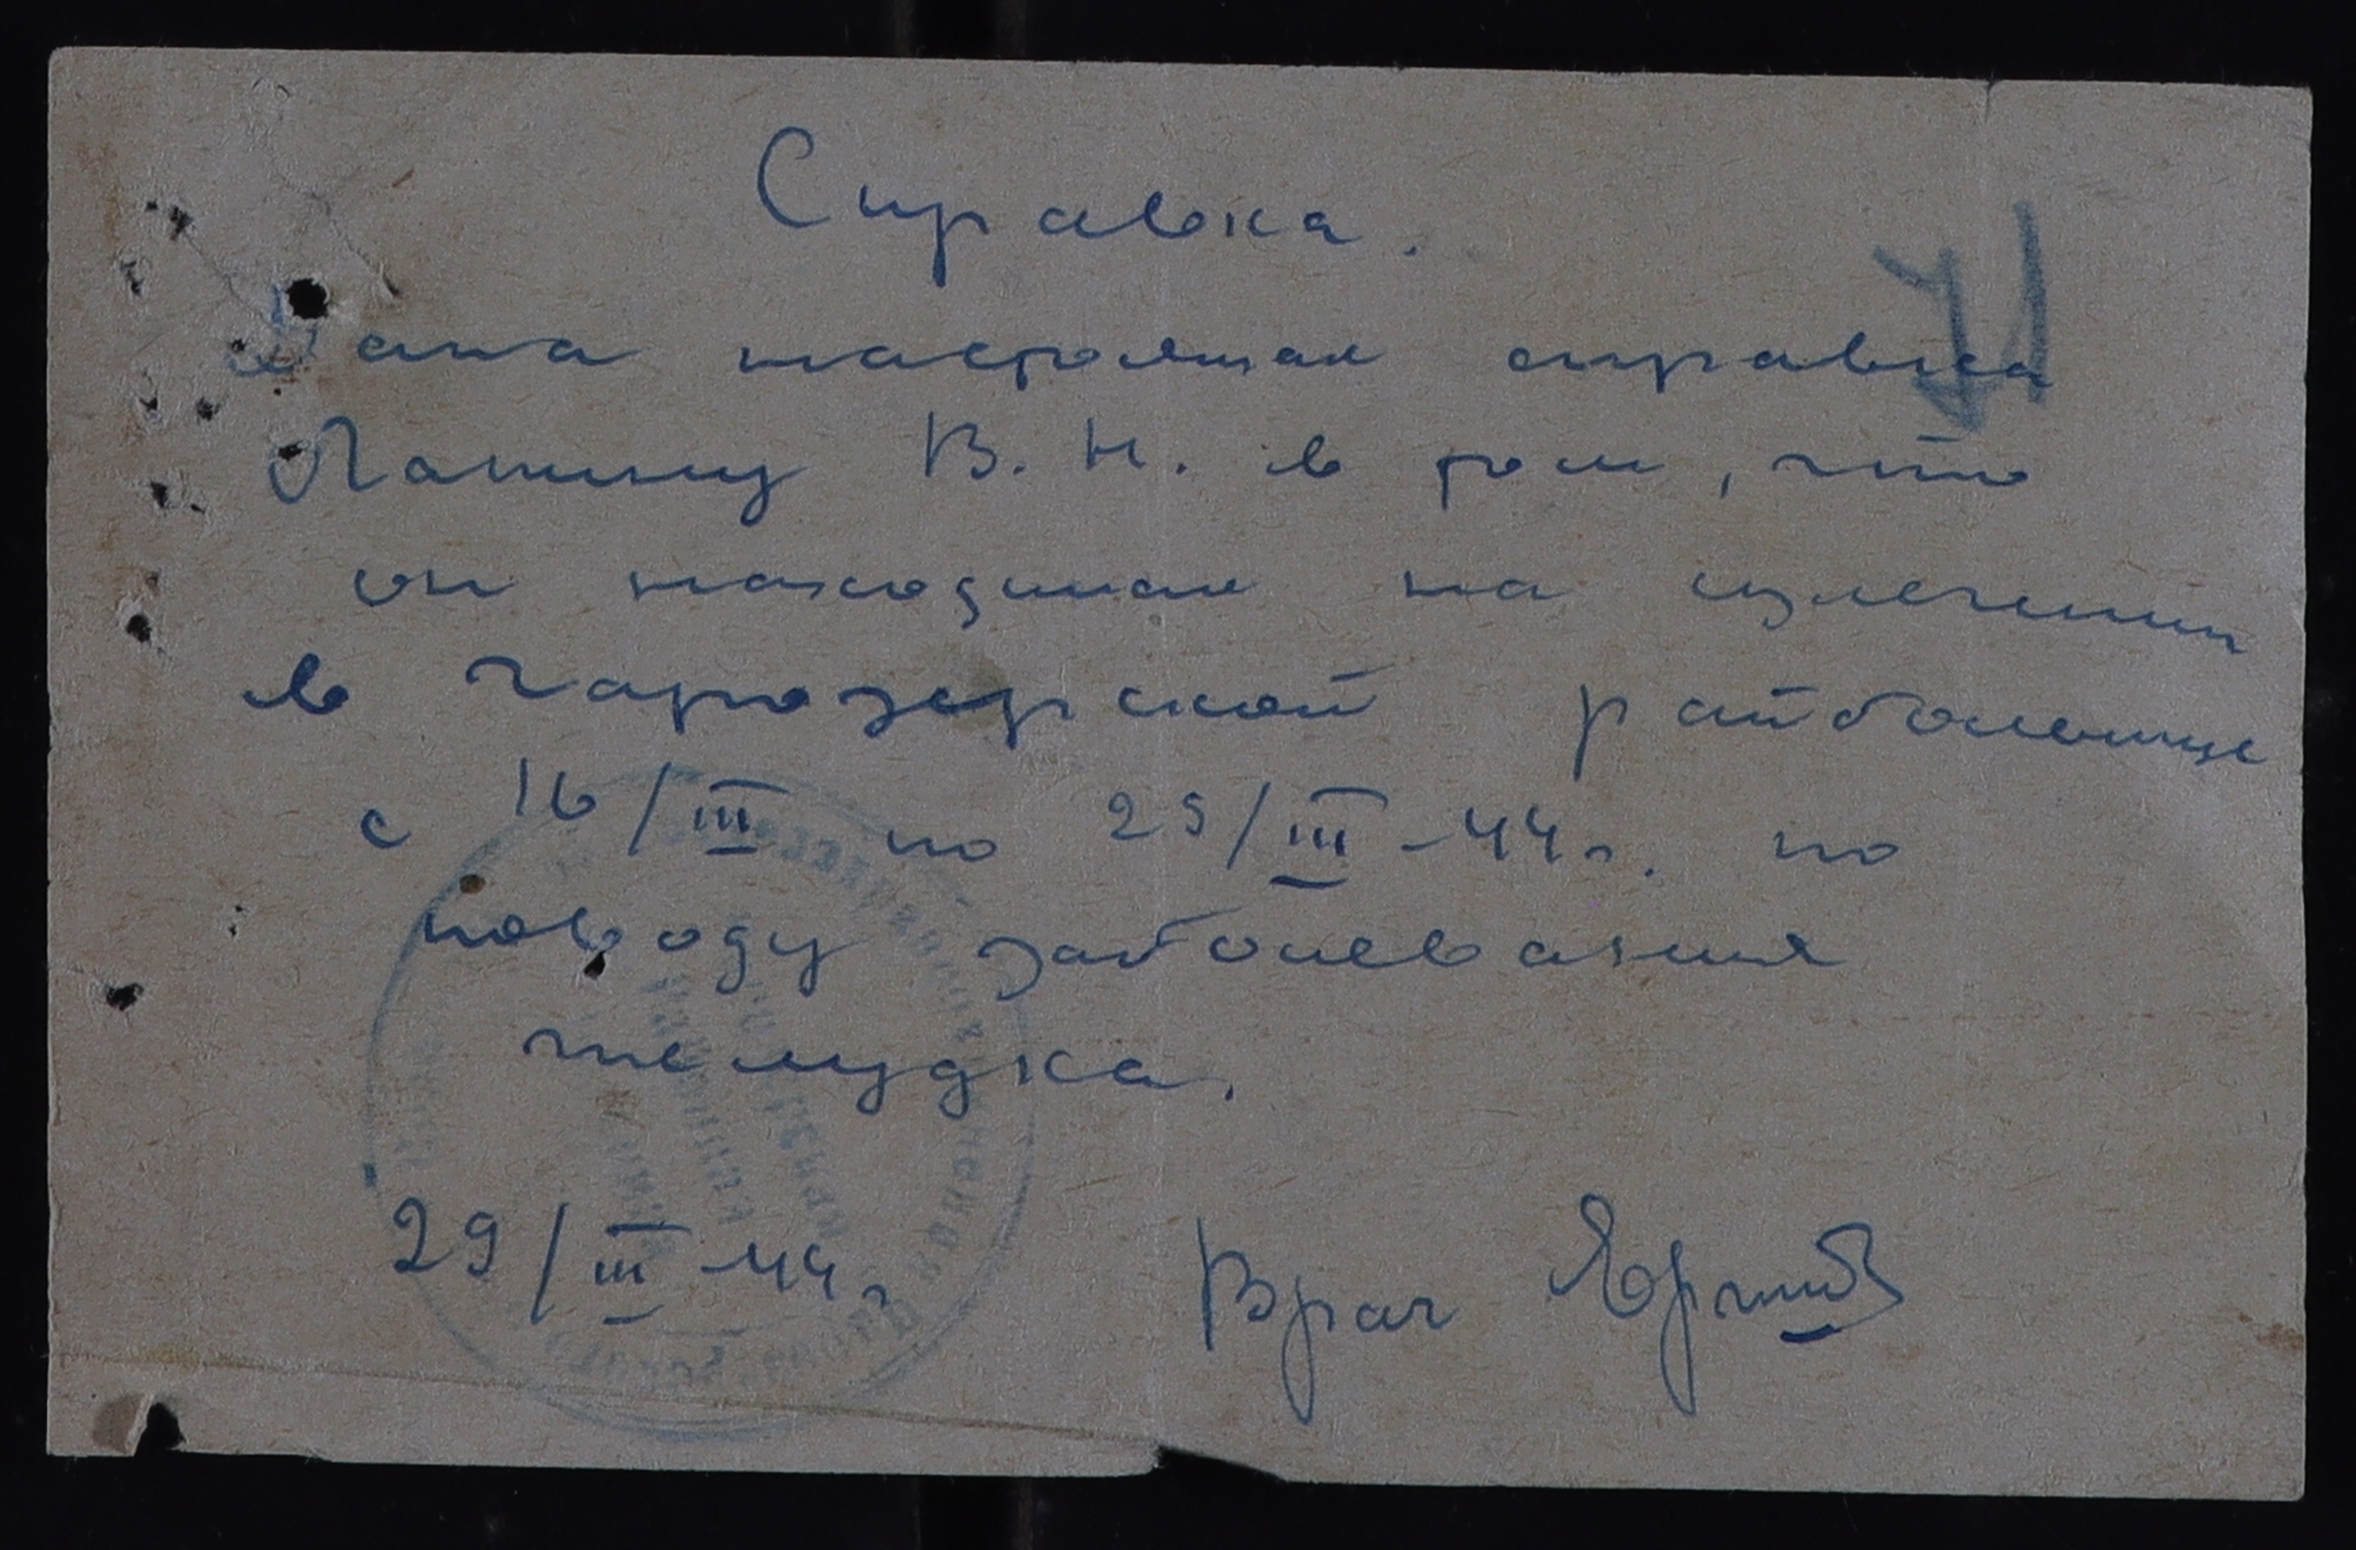 Справка.
Дана настоящая справка
Лапину В. Н. в том, что
он находился на излечении
в Чарозерской райбольнице
с 16/III по 25/III-44г. по
поводу заболевания
желудка.
29/III-44г.
Врач